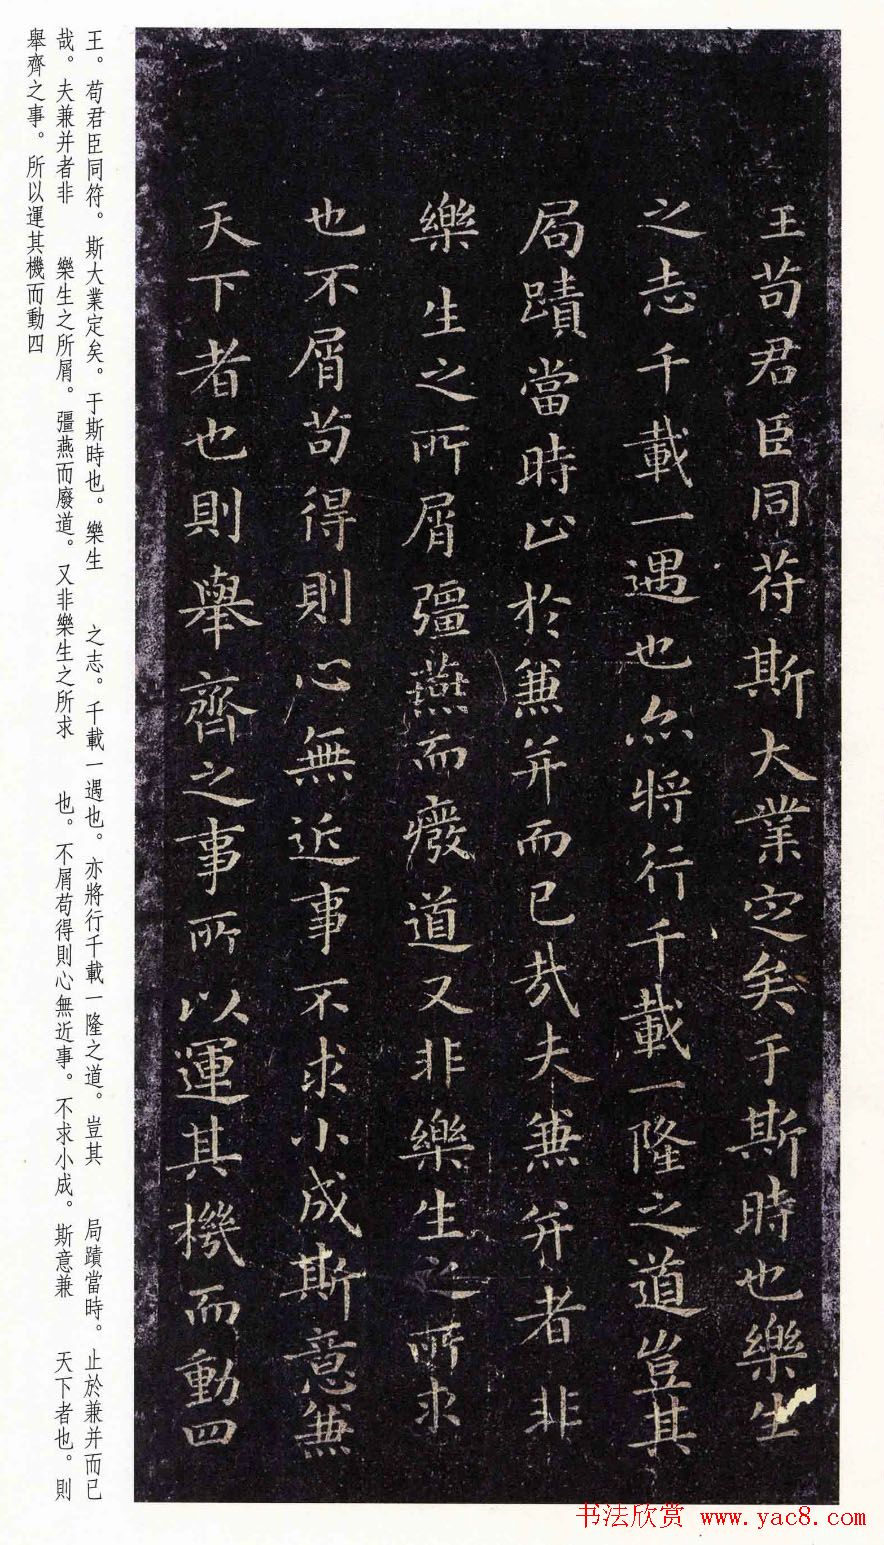 王苟君臣同符斯大業定矣于斯時也樂生
之志千載一遇也亦將行千載一隆之道豈其
局蹟當時止於兼并而已哉夫兼并者非
樂生之所屑彊燕而廢道又非樂生之所求
也不屑苟得則心無近事不求小成斯意兼
天下者也則舉齊之事所以運其機而動四
王。苟君臣同符。斯大業定矣。于斯時也。樂生 之志。千載一遇也。亦將行千載一隆之道。豈其 局蹟當時。止於兼并而已
哉。夫兼并者非 樂生之所屑。彊燕而廢道。又非樂生之所求 也。不屑苟得則心無近事。不求小成。斯意兼 天下者也。則
舉齊之事。所以運其機而動四
书法欣赏 www.yac8.com